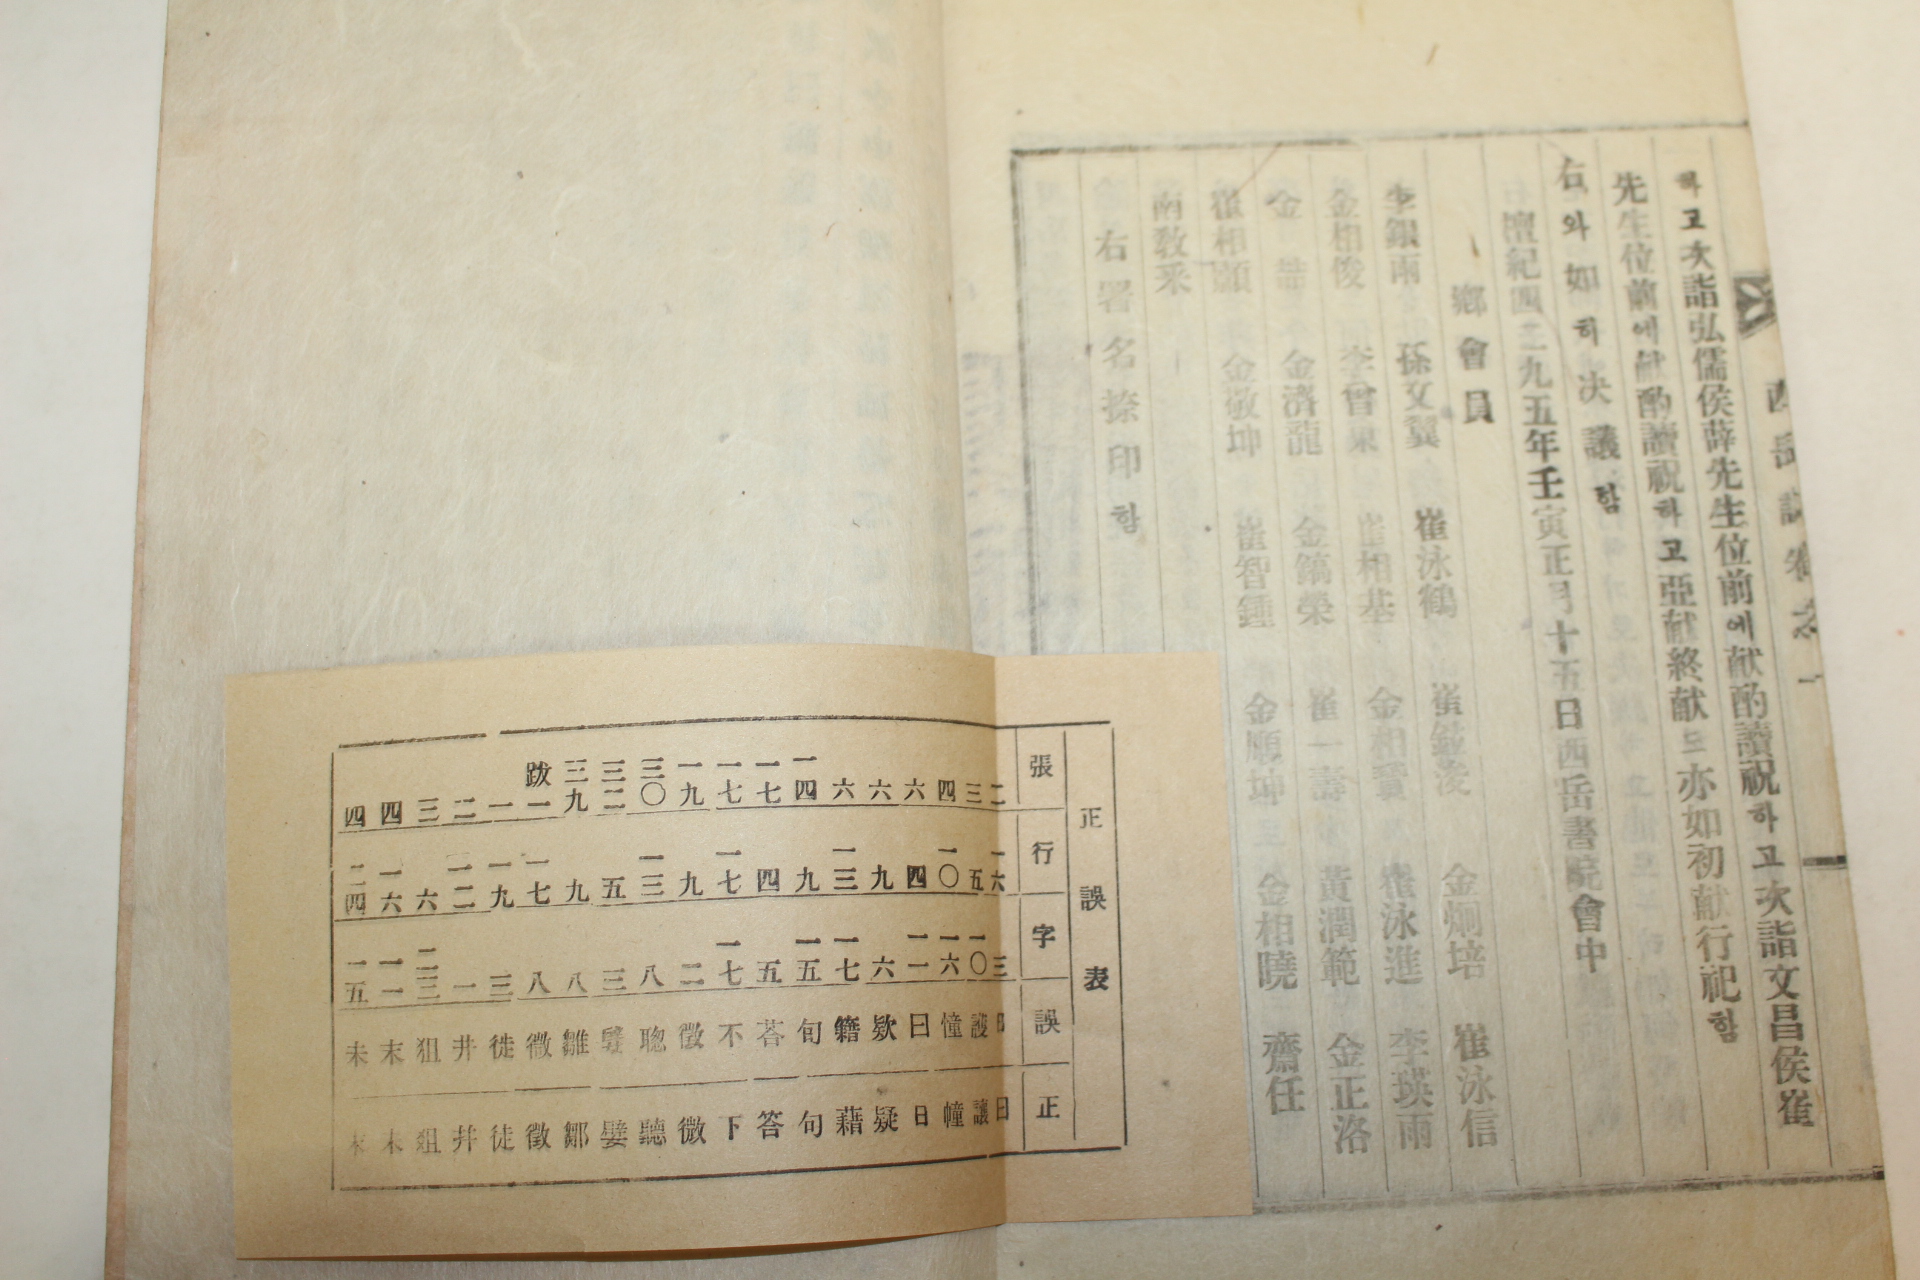 하고次詣弘儒侯薛先生位前에献酌讀祝하고次詣文昌侯崔
先生位前에献酌讀祝하고亞献終献도亦如初献行祀함
右와如히決議함
檀紀四二九五年壬寅正月十五日西岳書院會中
鄕會員
李銀雨 孫文翼 崔泳鶴 金炯培 崔泳信
金相俊 李曾杲 崔相基 金相翼 崔泳進 李瑛雨
金濟龍 金鎬榮 崔一壽 黃潤範 金正洛
崔相願 金敬坤 崔智鍾 金順坤 金相曉 齋任
南敎釆
右署名捺印함
正誤表
張 行 字 誤 正
二 一六 三 日 曰
三 一五 一〇 護 讓
四 一〇 一六 憧 幢
六 四 一一 曰 日
六 九 六 欵 疑
六 一三 一七 籍 藉
一四 九 一五 旬 句
一七 四 五 荅 答
一七 一七 一七 不 下
一九 九 二 徵 微
三〇 一三 八 聰 聽
三二 五 三
三九 九 八 雛 鄒
跋一 一七 八 微 徵
一 一九 三 徙 徒
二 一二 一 井 幷
三 六 二三 狙 組
四 一六 一一 末 未
四 二四 一五 未 末